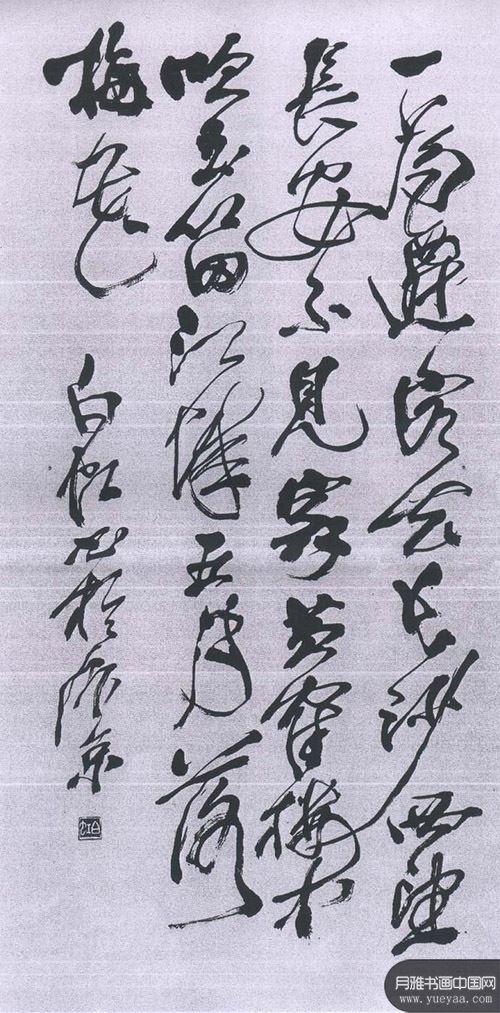 一為遷客去长沙西望
長安不見家黄鹤楼中
吹玉笛江城五月落
梅花 白虹书於京
白虹
月雅书画中国网
www.yueyaa.com